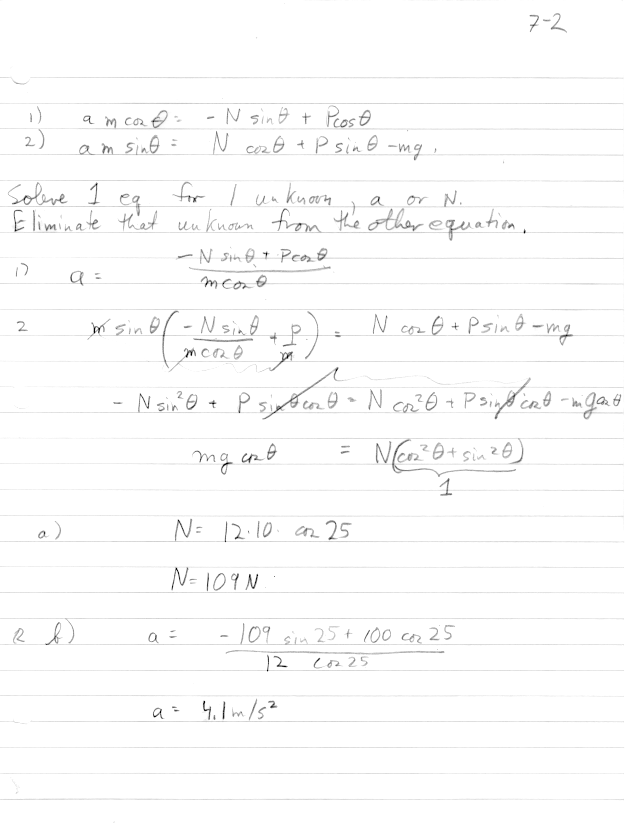 7-2
1) a m cos θ = - N sin θ + P cos θ
2) a m sin θ = N cos θ + P sin θ - mg.
Soleve 1 eq for 1 unknown, a or N.
Eliminate that unknown from the other equation.
1) a = (- N sin θ + P cos θ) / (m cos θ)
2 m sin θ ( (- N sin θ) / (m cos θ) + P / m ) = N cos θ + P sin θ - mg
- N sin² θ + P sin θ cos θ = N cos² θ + P sin θ cos θ - mg cos θ
mg cos θ = N (cos² θ + sin² θ)
1
a) N = 12 · 10 · cos 25
N = 109 N
b) a = (- 109 sin 25 + 100 cos 25) / (12 cos 25)
a = 4.1 m/s²